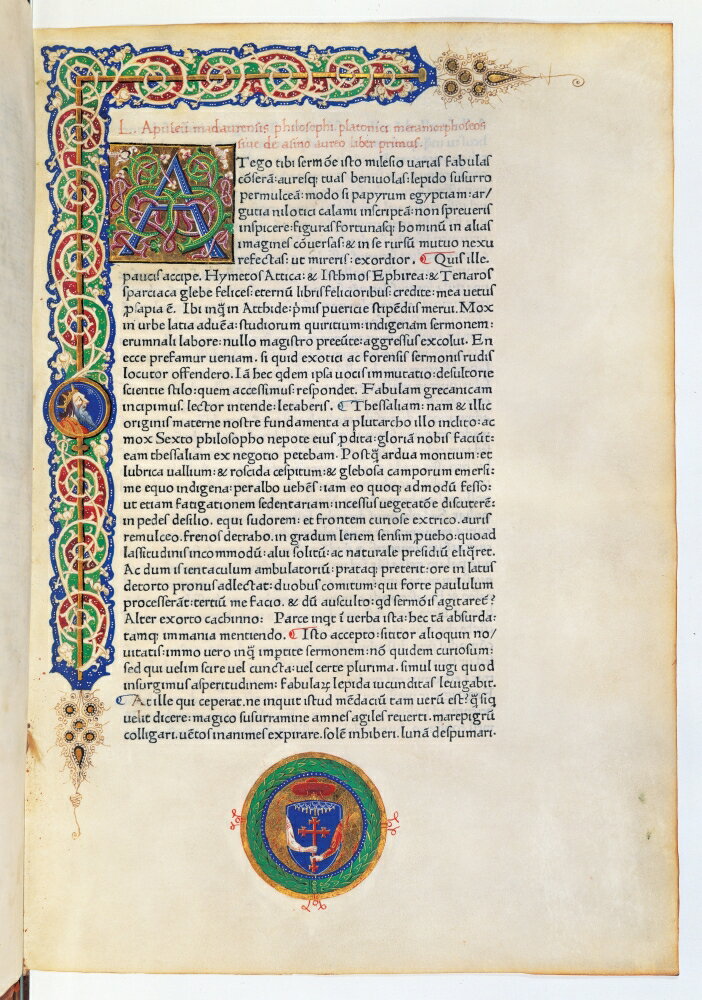 L. Apuleii madaurensis philosophi platonici metamorphoseos
siue de asino aureo liber primus.
ATego tibi sermōe isto milesio uarias fabulas
cōserā: auresq; tuas beniuolas: lepido susurro
permulceā: modo si papyrum egyptiam: ar/
gutia nilotici calami inscriptā: non spreueris
inspicere: figuras fortunasq; hominū in alias
imagines cōuersas: & in se rursū mutuo nexu
refectas: ut mireris: exordior. Quis ille.
paucis accipe. Hymetos Attica: & Isthmos Ephirea: & Tenaros
sparciaca glebe felices: eternū libris felicioribus: credite: mea uetus
ꝓsapia ē. Ibi inq̄ in Atthide: ṗmis puericie stipēdiis merui. Mox
in urbe latia aduēa: studiorum quiritium: indigenam sermonem:
erumnali labore: nullo magistro preeūte: aggressus excolui. En
ecce prefamur ueniam. si quid exotici ac forensis sermonis rudis
locutor offendero. Iā hec qdem ipsa uocis immutatio: desultorie
scientie stilo: quem accessimus: respondet. Fabulam grecanicam
incipimus. lector intende: letaberis. Thessaliam: nam & illic
originis materne nostre fundamenta a plutarcho illo inclito: ac
mox Sexto philosopho nepote eius ꝓdita: gloriā nobis faciūt:
eam thessaliam ex negotio petebam. Postq̄ ardua montium: et
lubrica uallium: & roscida cespitum: & glebosa camporum emersi:
me equo indigena: peralbo uehēs: iam eo quoq; admodū fesso:
ut etiam fatigationem sedentariam: incessus uegetatōe discuterē:
in pedes desilio. equi sudorem: et frontem curiose extrico. auris
remulceo. frenos detraho. in gradum lenem sensim ꝓueho: quoad
lassitudinis incommodū: alui solitū: ac naturale presidiū eliq̄ret.
Ac dum is ientaculum ambulatoriū: prataq; preterit: ore in latus
detorto pronus adlectat: duobus comitum: qui forte paululum
processerāt: tertiū me facio. & dū ausculto: qd sermōis agitaret?
Alter exorto cachinno: Parce inqt ī uerba ista: hec tā absurda:
tamq; immania mentiendo. Isto accepto: sititor alioquin no/
uitatis: immo uero inq̄ imptite sermonem: nō quidem curiosum:
sed qui uelim scire uel cuncta: uel certe plurima. simul iugi quod
insurgimus asperitudinem: fabulaꝝ lepida iucunditas leuigabit.
At ille qui ceperat. ne inquit istud mēdaciū tam uerū est? q̄ siq̄
uelit dicere: magico susurramine amnes agiles reuerti. mare pigrū
colligari. uētos inanimes expirare. solē inhiberi. lunā despumari.